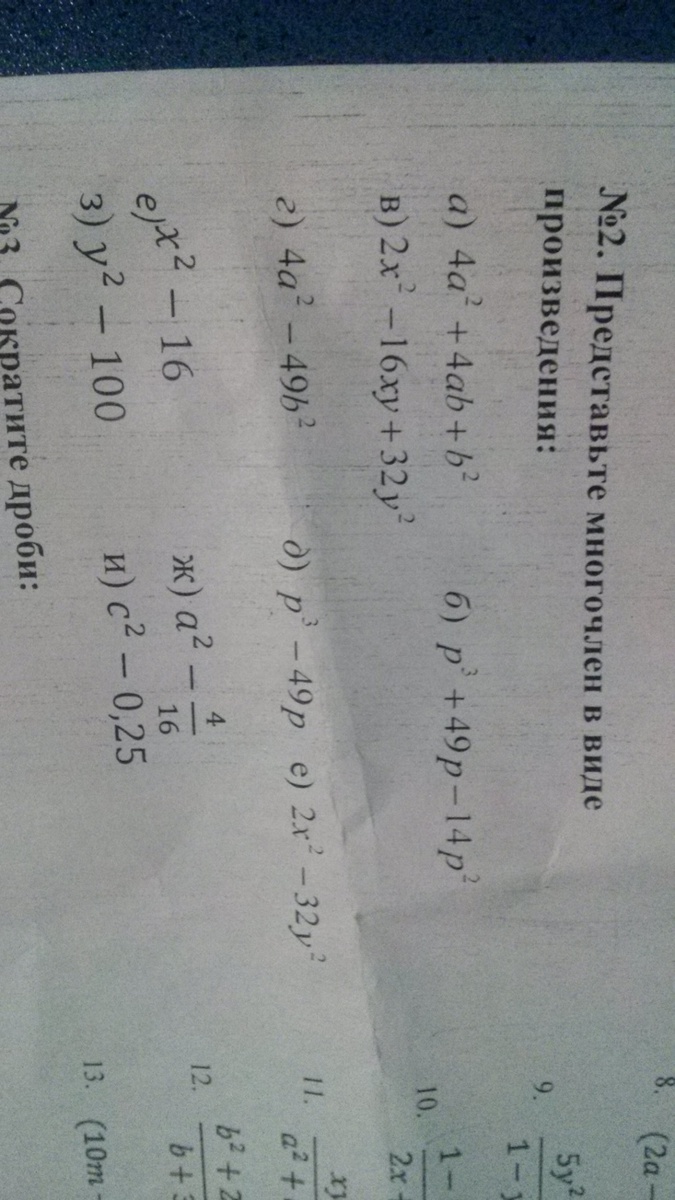 №2. Представьте многочлен в виде
произведения:
а) 4a² + 4ab + b² б) p³ + 49p − 14p²
в) 2x² − 16xy + 32y²
г) 4a² − 49b² д) p³ − 49p е) 2x² − 32y²
е) x² − 16 ж) a² − 4/16
з) y² − 100 и) c² − 0,25
№3. Сократите дроби:
8. (2a −
9. 5y² / 1 −
10. 1 − / 2x
11. xy / a² +
12. b² + 2 / b + 3
13. (10m −